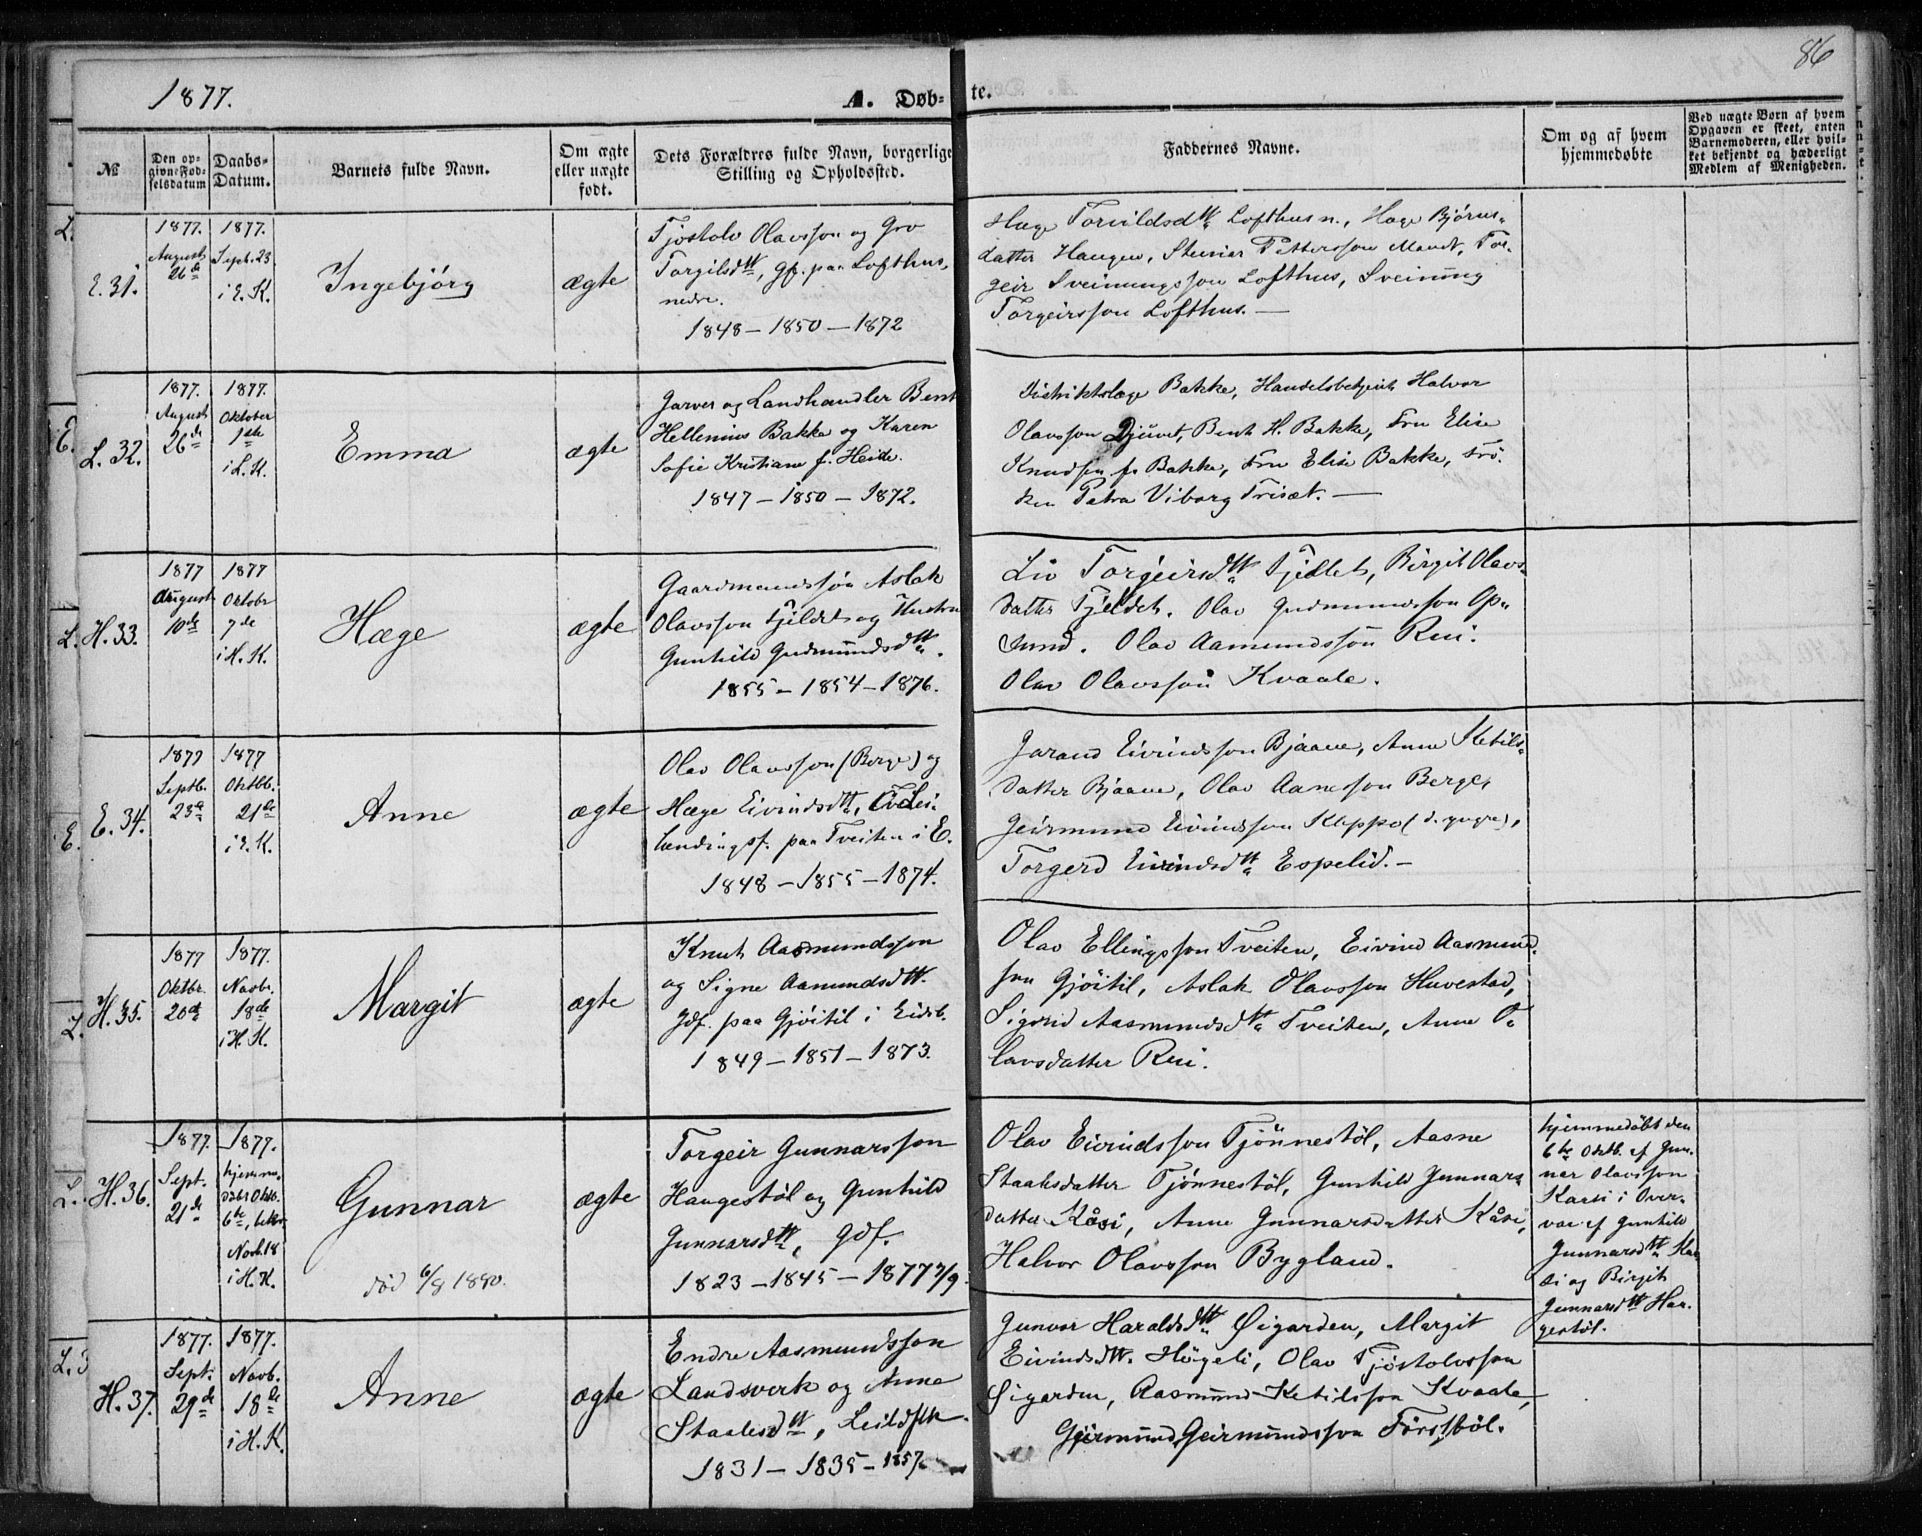 86
1877.
A. Døb-
te.
№
Den op-
givne Fød-
selsdatum
Daabs-
Datum.
Barnets fulde Navn.
Om ægte
eller uægte
født.
Dets Forældres fulde Navn, borgerlige
Stilling og Opholdssted.
Faddernes Navne.
Om og af hvem
hjemmedøbte
Ved uægte Børn af hvem
Opgaven er skeet, enten
Barnemoderen, eller hvil-
ket bekjendt og hæderligt
Medlem af Menigheden.
E. 31.
1877.
August
26de
1877.
Sept. 23
i E. K.
Ingebjörg
ægte
Tjostolv Olavsson og Gro
Torgilsdtt, gf. paa Lofthus,
nedre.
1848 – 1850 – 1872
Hæge Torvildsdtt Lofthus n., Hæge Bjørns-
datter Haugen, Steinar Pettersson Mandt, Tor-
geir Sveinungsson Lofthus, Sveinung
Torgeirsson Lofthus. —
L. 32.
1877.
August
26de
1877.
Oktober
1ste
i L. K.
Emma
ægte
Garver og Landhandler Bent
Hellenius Bakka og Karen
Sofie Kristiane f. Heide.
1847 – 1850 – 1872.
Distriktslæge Bakke, Handelsbetjent Halvor
Olavsson Djuvet, Bent H. Bakke, Fru Elise
Knudsen f. Bakke, Fru Elise Bakke, Frö-
ken Petra Viborg Trisæt. —
H. 33.
1877
August
10de
1877
Oktober
7de
i H. K.
Hæge
ægte
Gaardmandssön Aslak
Olavsson Fjeldet og Hustru
Gunhild Gudmundsdtt.
1855 – 1854 – 1876.
Liv Torgeirsdtt Fjeldet, Birgit Olavs-
datter Fjeldet. Olav Gudmundsson Op-
sund. Olav Aamundssön Rui.
Olav Olavsson Kvaale.
E. 34.
1877
Septb.
23de
1877
Oktbb.
21de
i E. K.
Anne
ægte
Olav Olavsson (Berge) og
Hæge Eivindsdtt, Lei-
lændingsf. paa Tveiten i E.
1848 – 1855 – 1874.
Jarand Eivindsson Bjaaen, Anne Ketils-
datter Bjaaen, Olav Aanesson Berge,
Geirmund Eivindsson Kleppo (d. yngre),
Torgerd Eivindsdtt Espelid. –
H. 35.
1877
Oktbr.
20de
1877.
Novbr.
18de
i H. K.
Margit
ægte
Knut Aasmundsson
og Signe Aamundsdtt.
gdf. paa Gjöitil i Eidsb.
1849 – 1851 – 1873.
Olav Ellingsson Tveiten, Eivind Aasmund-
son Gjöitil, Aslak Olavsson Huvestad,
Sigrid Aasmundsdtt Tveiten, Anne O-
lavsdatter Rui.
H. 36.
1877.
Sept.
21de
1877.
hjemme-
döbt Oktb.
6te, bekr.
Novb. 18
i H. K.
Gunnar
död 6/8 1890.
ægte
Torgeir Gunnarsson
Haugestöl og Gunhild
Gunnarsdtt, gdf.
1823 – 1845 – 1877 7/9.
Olav Eivindsson Tjönnestöl, Aasne
Staalesdatter Tjönnestöl, Gunhild Gunnars-
datter Kåsi, Anne Gunnarsdatter Kåsi,
Halvor Olavsson Bygland.
hjemmedöbt den
6te Oktb. af Gun-
nar Olavsson
Kaasi i Over-
vær af Gunhild
Gunnarsdtt Kaa-
si og Birgit
Gunnarsdtt Hau-
gestöl.
H. 37.
1877.
Sept.
29de
1877.
Novb.
18de
i H. K.
Anne
ægte
Endre Aasmundsson
Landsverk og Anne
Staalesdtt, Leildflk.
1831 – 1835 – 1857
Gunvor Haraldsdtt Øigarden, Margit
Eivindsdtt. Högeli, Olav Tjöstolvsson
Øigarden, Aasmund Ketilsson Kvaale,
Geirmund Geirmundsson Förstböl.